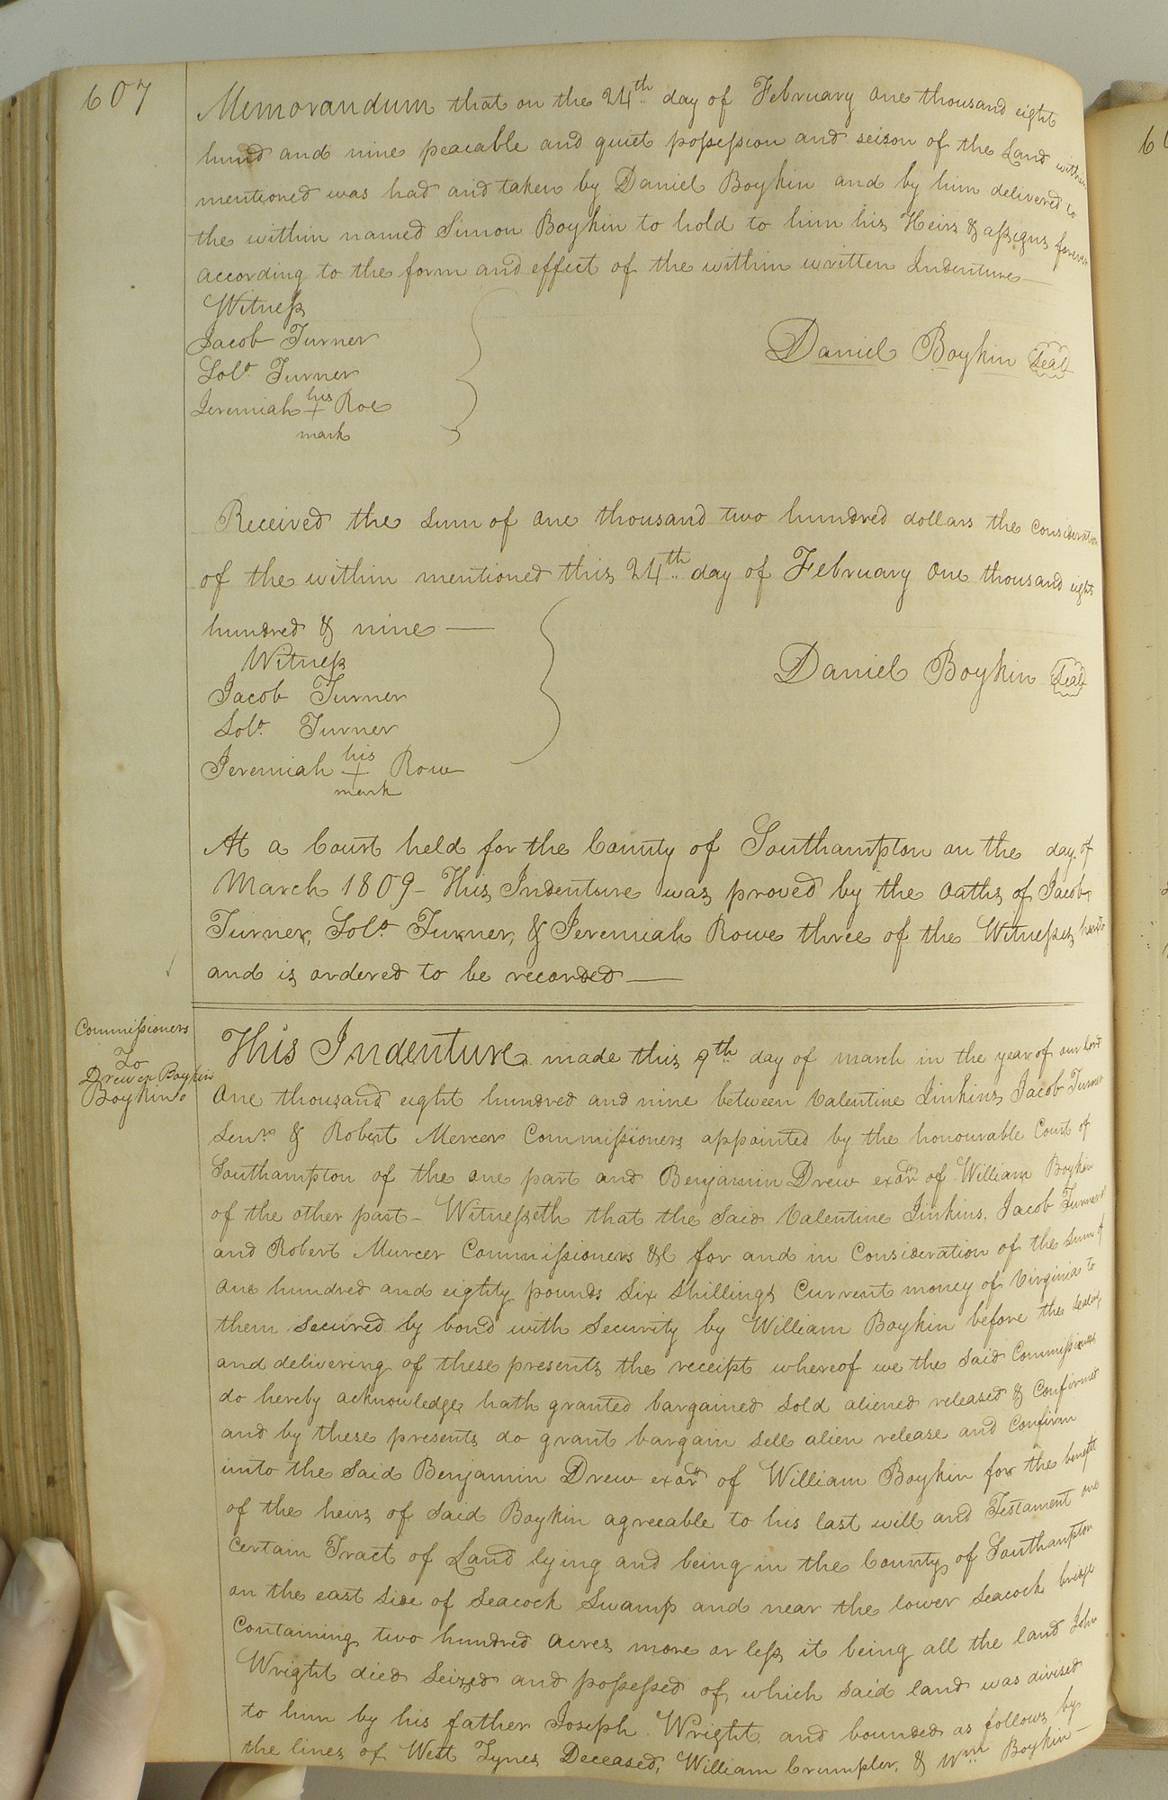 607
Memorandum that on the 24th day of February One thousand eight
hund and nine peacable and quiet possession and seison of the Land within
mentioned was had and taken by Daniel Boykin and by him delivered to
the within named Simon Boykin to hold to him his Heirs & assigns forever
according to the form and effect of the within written Indenture
Witness
Jacob Turner
Solo. Turner
Jeremiah his + Roe
mark
Daniel Boykin Seal
Received the sum of One thousand two hundred dollars the Consideration
of the within mentioned this 24th day of February One thousand eight
hundred & nine
Witness
Jacob Turner
Solo. Turner
Jeremiah his + Rowe
mark
Daniel Boykin Seal
At a Court held for the County of Southampton on the day of
March 1809 - This Indenture was proved by the Oaths of Jacob
Turner, Solo. Turner, & Jeremiah Rowe three of the Witnesses hereto
and is ordered to be recorded
Commissioners
To
Drewer Boykin
Boykin
This Indenture made this 9th day of march in the year of our Lord
One thousand eight hundred and nine between Valentine Jinkins Jacob Turner
Senr. & Robert Mercer Commissioners appointed by the honourable Court of
Southampton of the one part and Benjamin Drew exor. of William Boykin
of the other part - Witnesseth that the said Valentine Jinkins, Jacob Turner
and Robert Murcer Commissioners &c for and in Consideration of the Sum of
One hundred and eighty pounds six shillings Current money of Virginia to
them secured by bond with security by William Boykin before the sealing
and delivering of these presents the receipt whereof we the said Commissioners
do hereby acknowledge hath granted bargained sold aliened released & Confirmed
and by these presents do grant bargain sell alien release and Confirm
unto the said Benjamin Drew exor. of William Boykin for the benefit
of the heirs of said Boykin agreeable to his last will and Testament one
Certain Tract of Land lying and being in the County of Southampton
on the east side of Seacock Swamp and near the lower Seacock bridge
Containing two hundred acres more or less it being all the land John
Wright died seized and possessed of which said land was divised
to him by his father Joseph Wright and bounded as follows by
the lines of West Tynes Deceased, William Crumpler, & Wm. Boykin